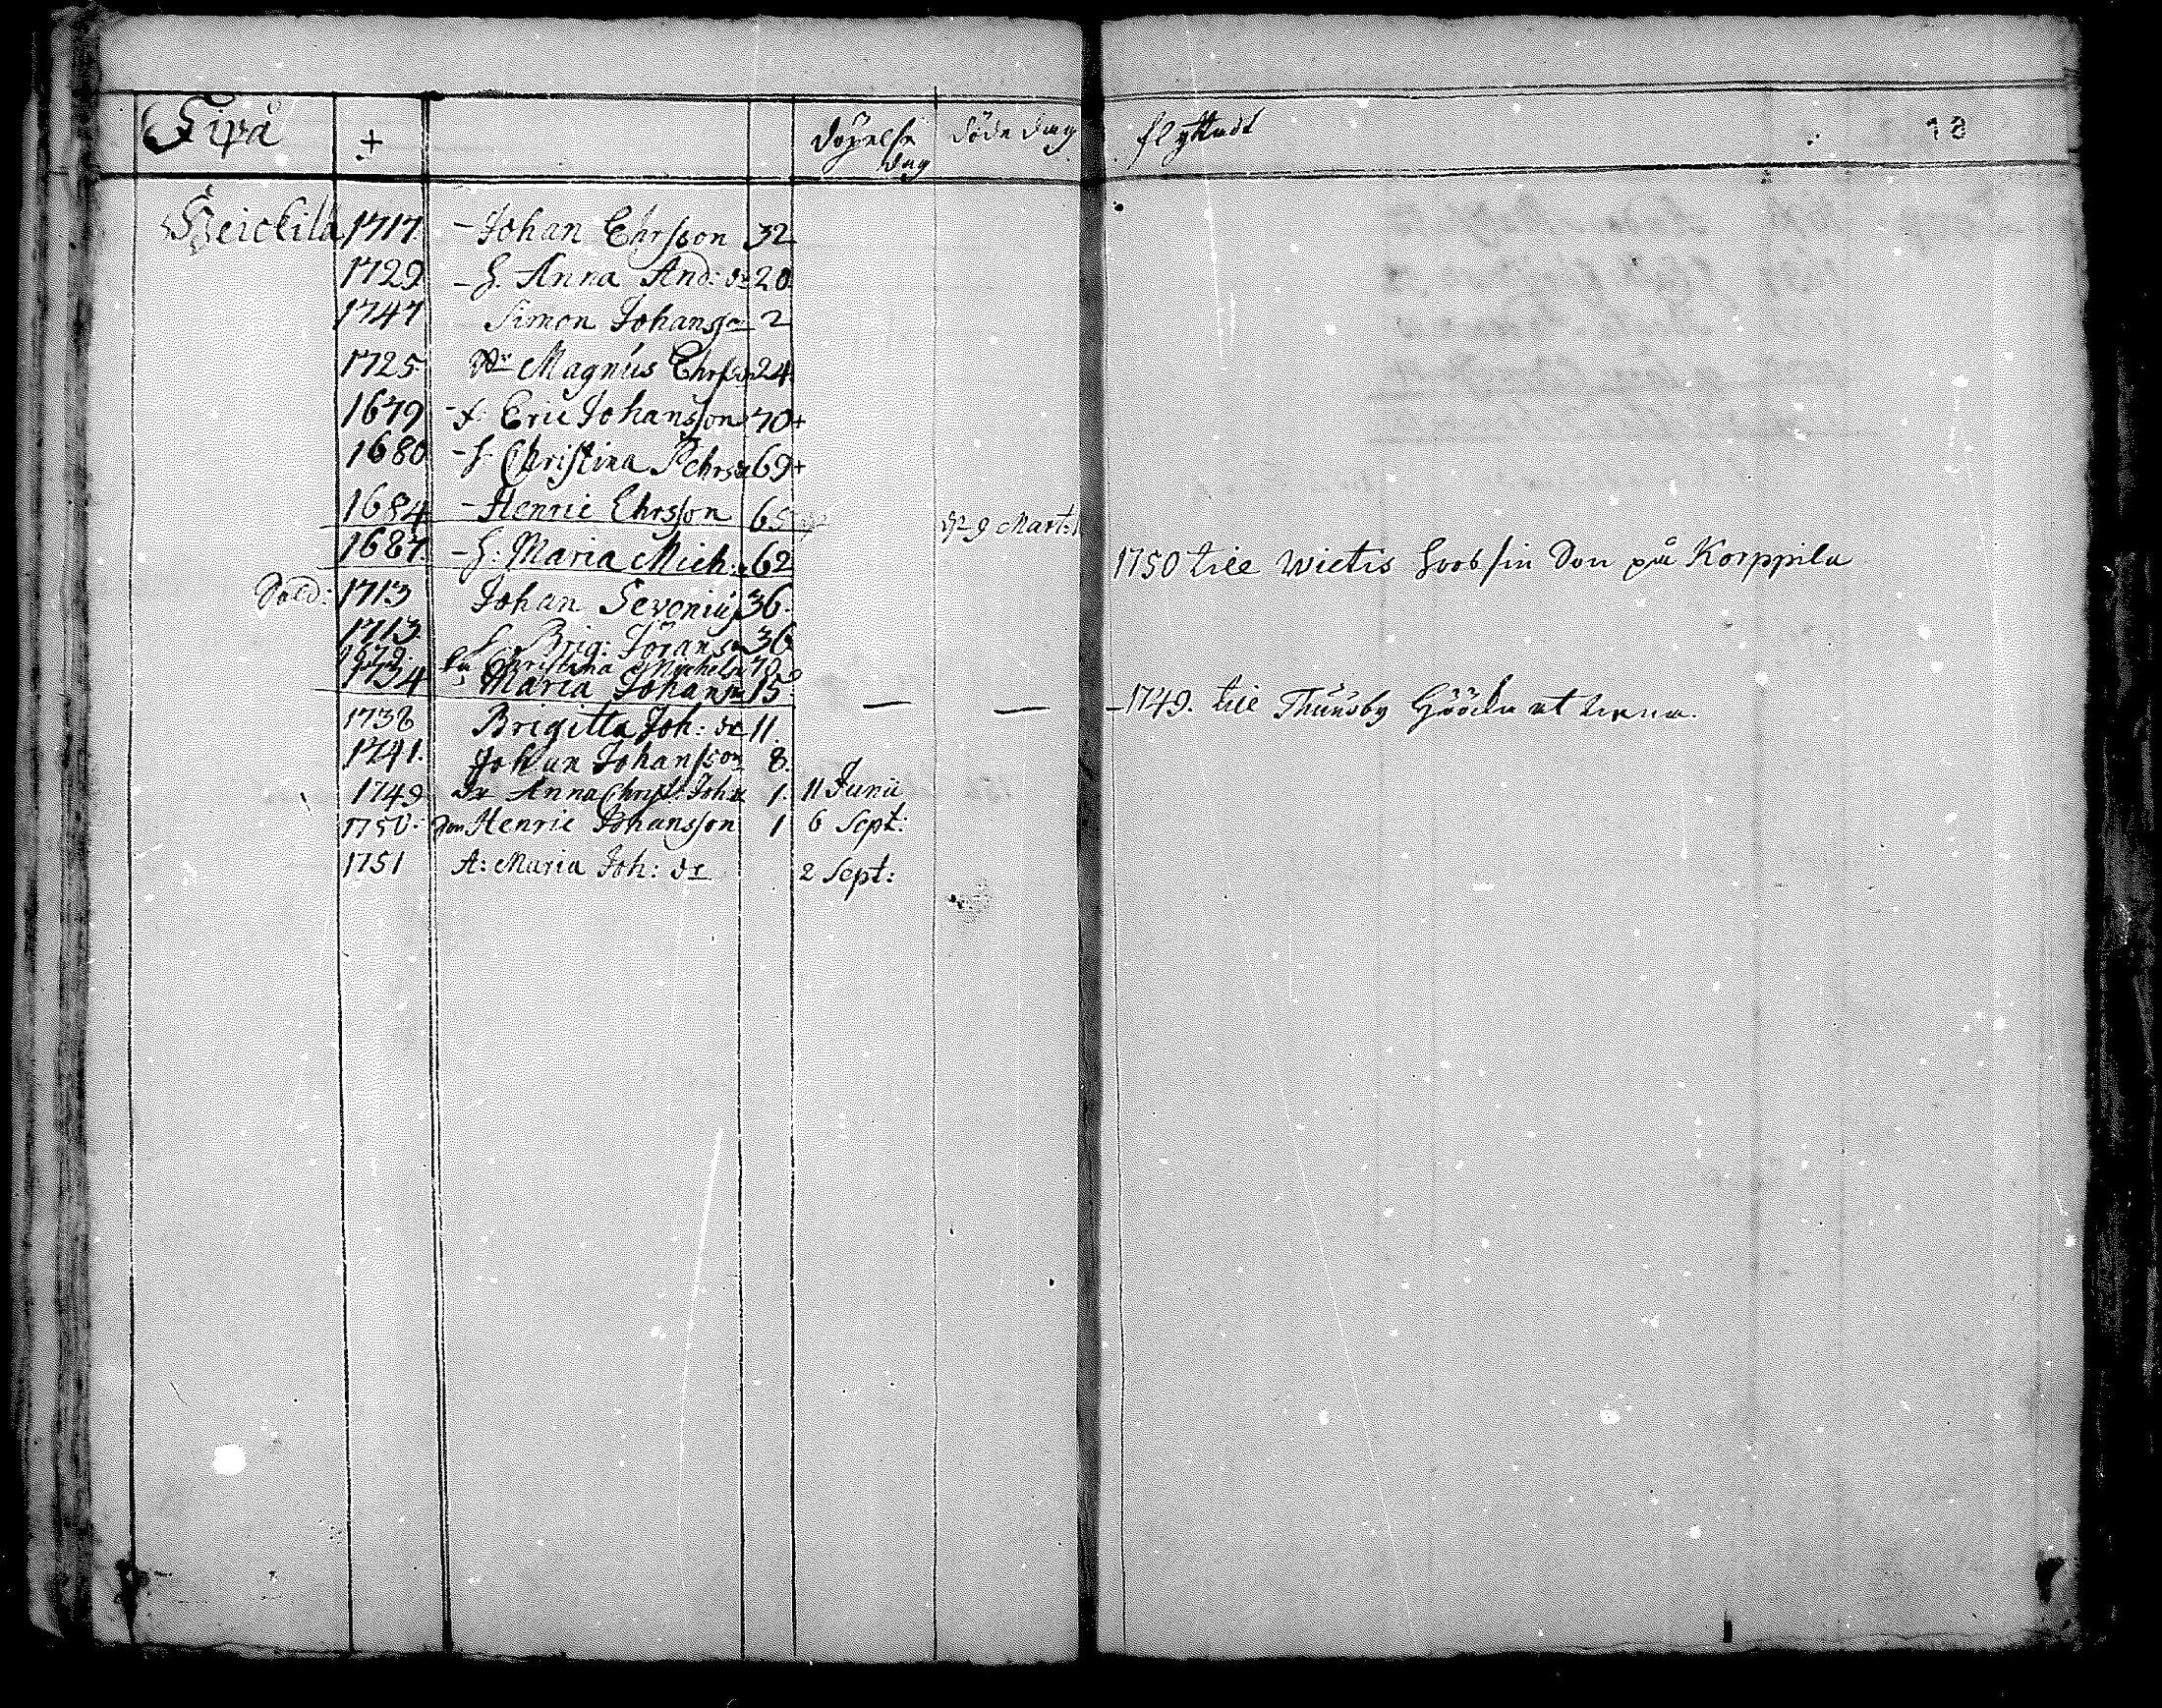 Sipå + döpelse dag döde dag flyttadt
Heickilä 1717. - Johan Ehrsson 32
1729 - H. Anna And: dr 20
1747 Simon Johansson 2
1725 Magnus Ehrsson 24
1679 - f. Eric Johansson 70 +
1680 - H. Christina Pehrs dr 69 +
1684 - Henric Ehrsson 65 9 Mart:
1687. - H: Maria Mich: 62 1750 till Wictis hoos sin Son på Korppila
Sold: 1713 Johan Sevonius 36.
1713 H. Brig: Jörans dr 36
1679. Christina Michels 70.
1734 Maria Johans dr 15. — — - 1749. till Thusby
1738 Brigitta Joh: dr 11.
1741. Johan Johansson 8.
1749 dr Anna Christ: Joh: 1. 11 Junii
1750. Son Henric Johansson 1 6 Sept:
1751 A: Maria Joh: dr 2 Sept: